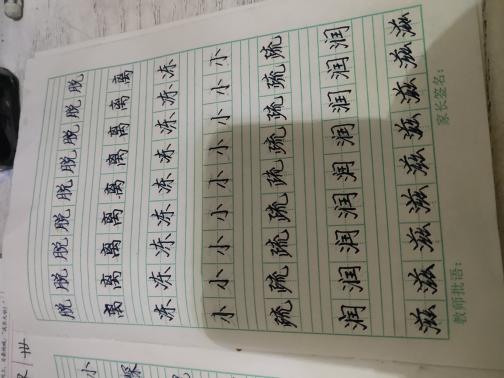 脱脱脱脱脱脱脱脱脱
离离离离离离离离离
冻冻冻冻冻冻冻冻冻
小小小小小小小小小
疏疏疏疏疏疏疏疏疏
润润润润润润润润润
滋滋滋滋滋滋滋滋滋
教师批语: 家长签名: